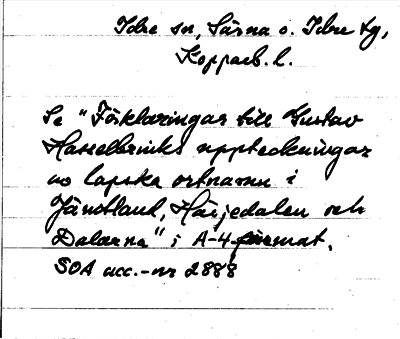 Idre sn, Särna o. Idre tg,
Kopparb. l.
Se "Förklaringar till Gustav
Hasselbrinks uppteckningar
av lapska ortnamn i
Jämtland, Härjedalen och
Dalarna" i A-4 format.
SOA acc.-nr 2888